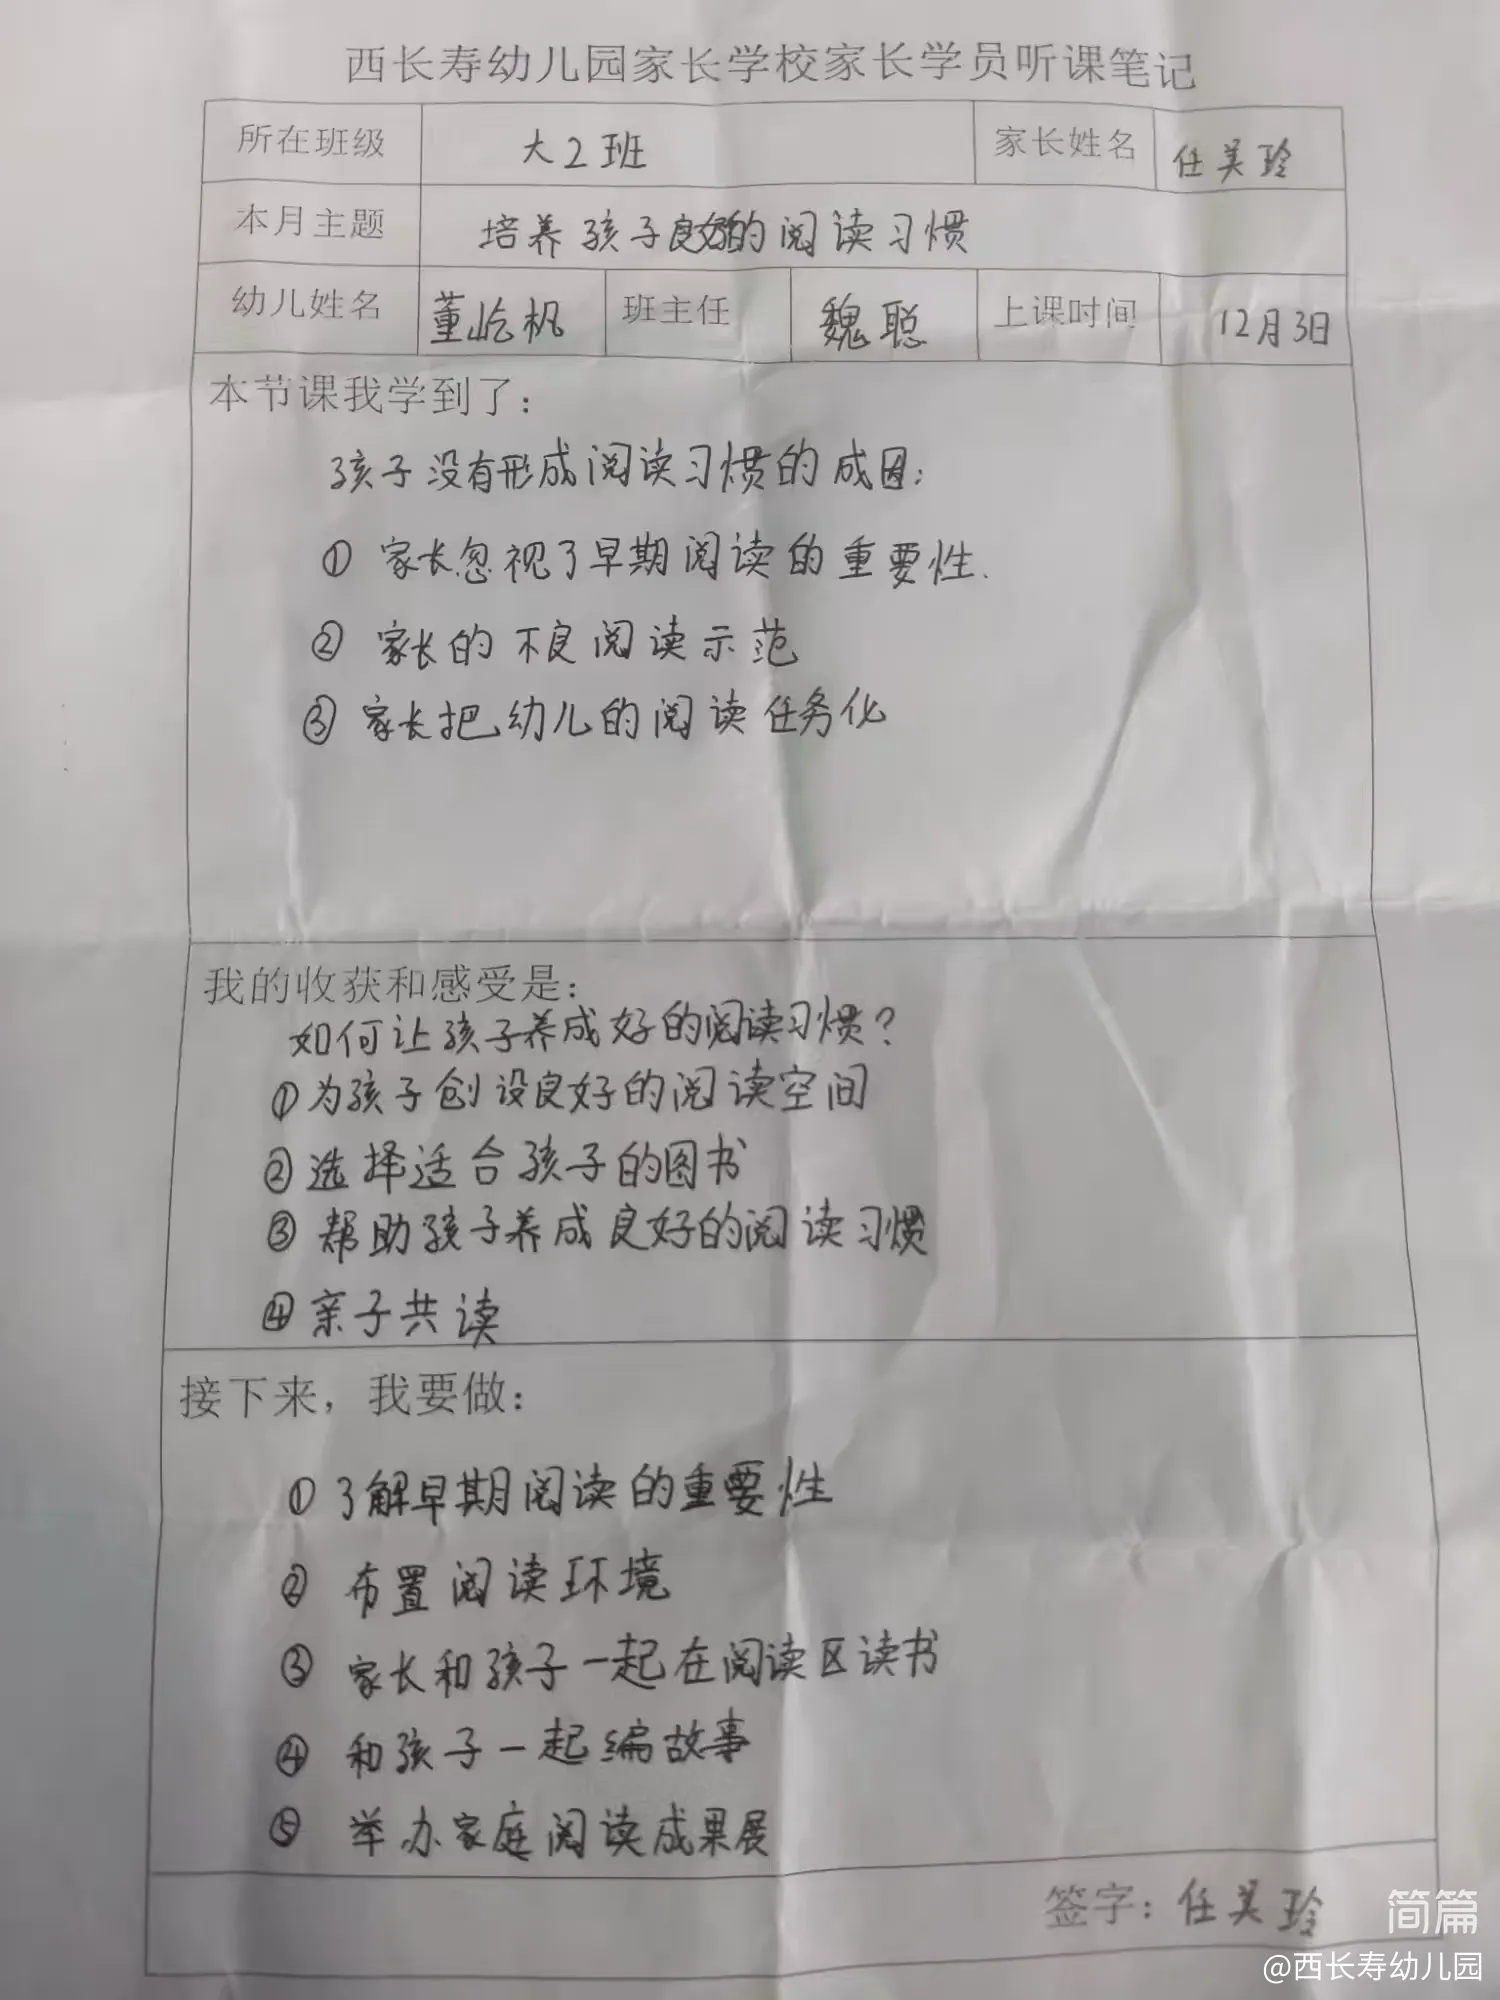 西长寿幼儿园家长学校家长学员听课笔记
所在班级 大2班 家长姓名 任美玲
本月主题 培养孩子良好的阅读习惯
幼儿姓名 董屹枫 班主任 魏聪 上课时间 12月3日
本节课我学到了:
孩子没有形成阅读习惯的成因:
① 家长忽视了早期阅读的重要性.
② 家长的不良阅读示范
③ 家长把幼儿的阅读任务化
我的收获和感受是:
如何让孩子养成好的阅读习惯?
①为孩子创设良好的阅读空间
②选择适合孩子的图书
③ 帮助孩子养成良好的阅读习惯
④亲子共读
接下来，我要做:
①了解早期阅读的重要性
② 布置阅读环境
③ 家长和孩子一起在阅读区读书
④ 和孩子一起编故事
⑤ 举办家庭阅读成果展
签字: 任美玲
简篇
@西长寿幼儿园